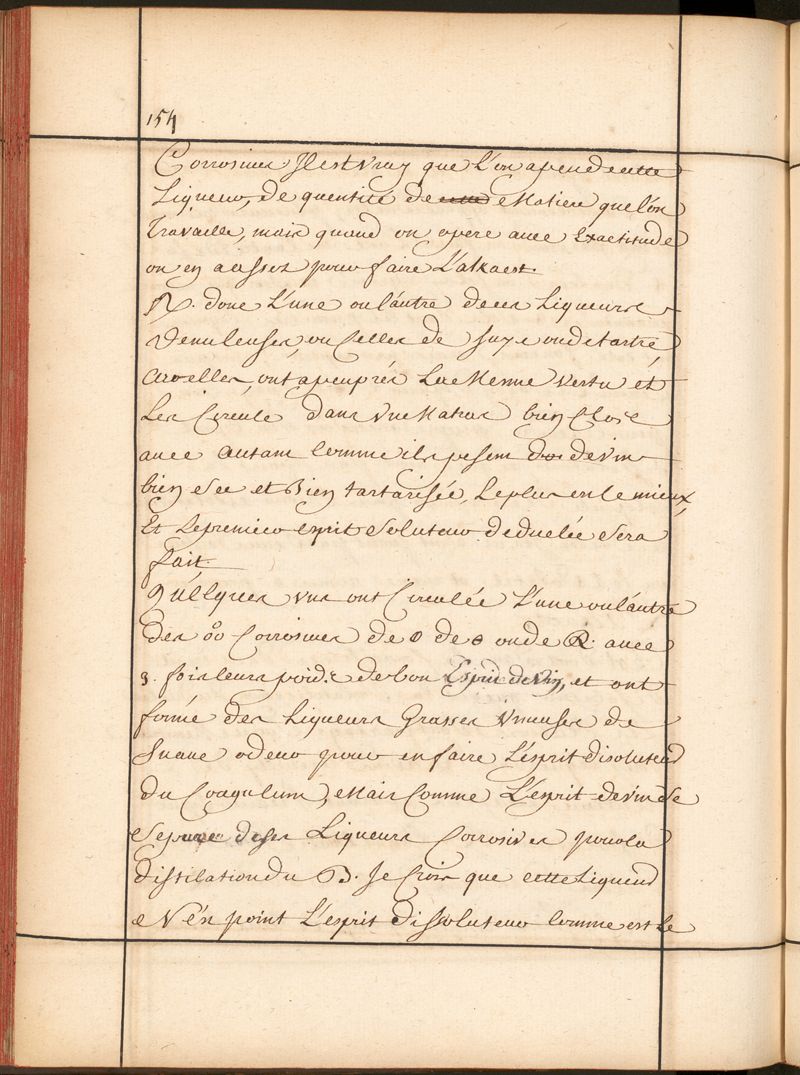 154
Corrosiues Il est vray que L'on a peu de cette
Liqueur, de quentité de cette Matiere que l'on
Travaille, mais quand on opere auec Exactitude
on en a assez pour faire L'alkaest.
R. donc L'une ou lautre de ces Liqueurs
ou Celles de suye ou de tartre
Car elles, ont a peu prés La Mesme vertu et
Les Circule dans vn Matras bien Clos
auec autant comme ils pesent de vin
bien sec et Bien tartarisée, Le plus en le mieux,
Et Le premier esprit soluteur sera
fait.
Quélques vns ont Circulée L'une ou lautre
des Corrosiues de de ou de R. auec
3. fois leurs poids de bon Esprit de vin, et ont
formé des Liqueurs Grasses de
Suaue odeur pour en faire L'ésprit disoluteur
du Coagulum, Mais Comme L'ésprit de vin se
Separe de ses Liqueurs Corrosives par la
distilation du B. Je Crois que cette Liqueur
N'én point L'ésprit dissoluteur comme est Le